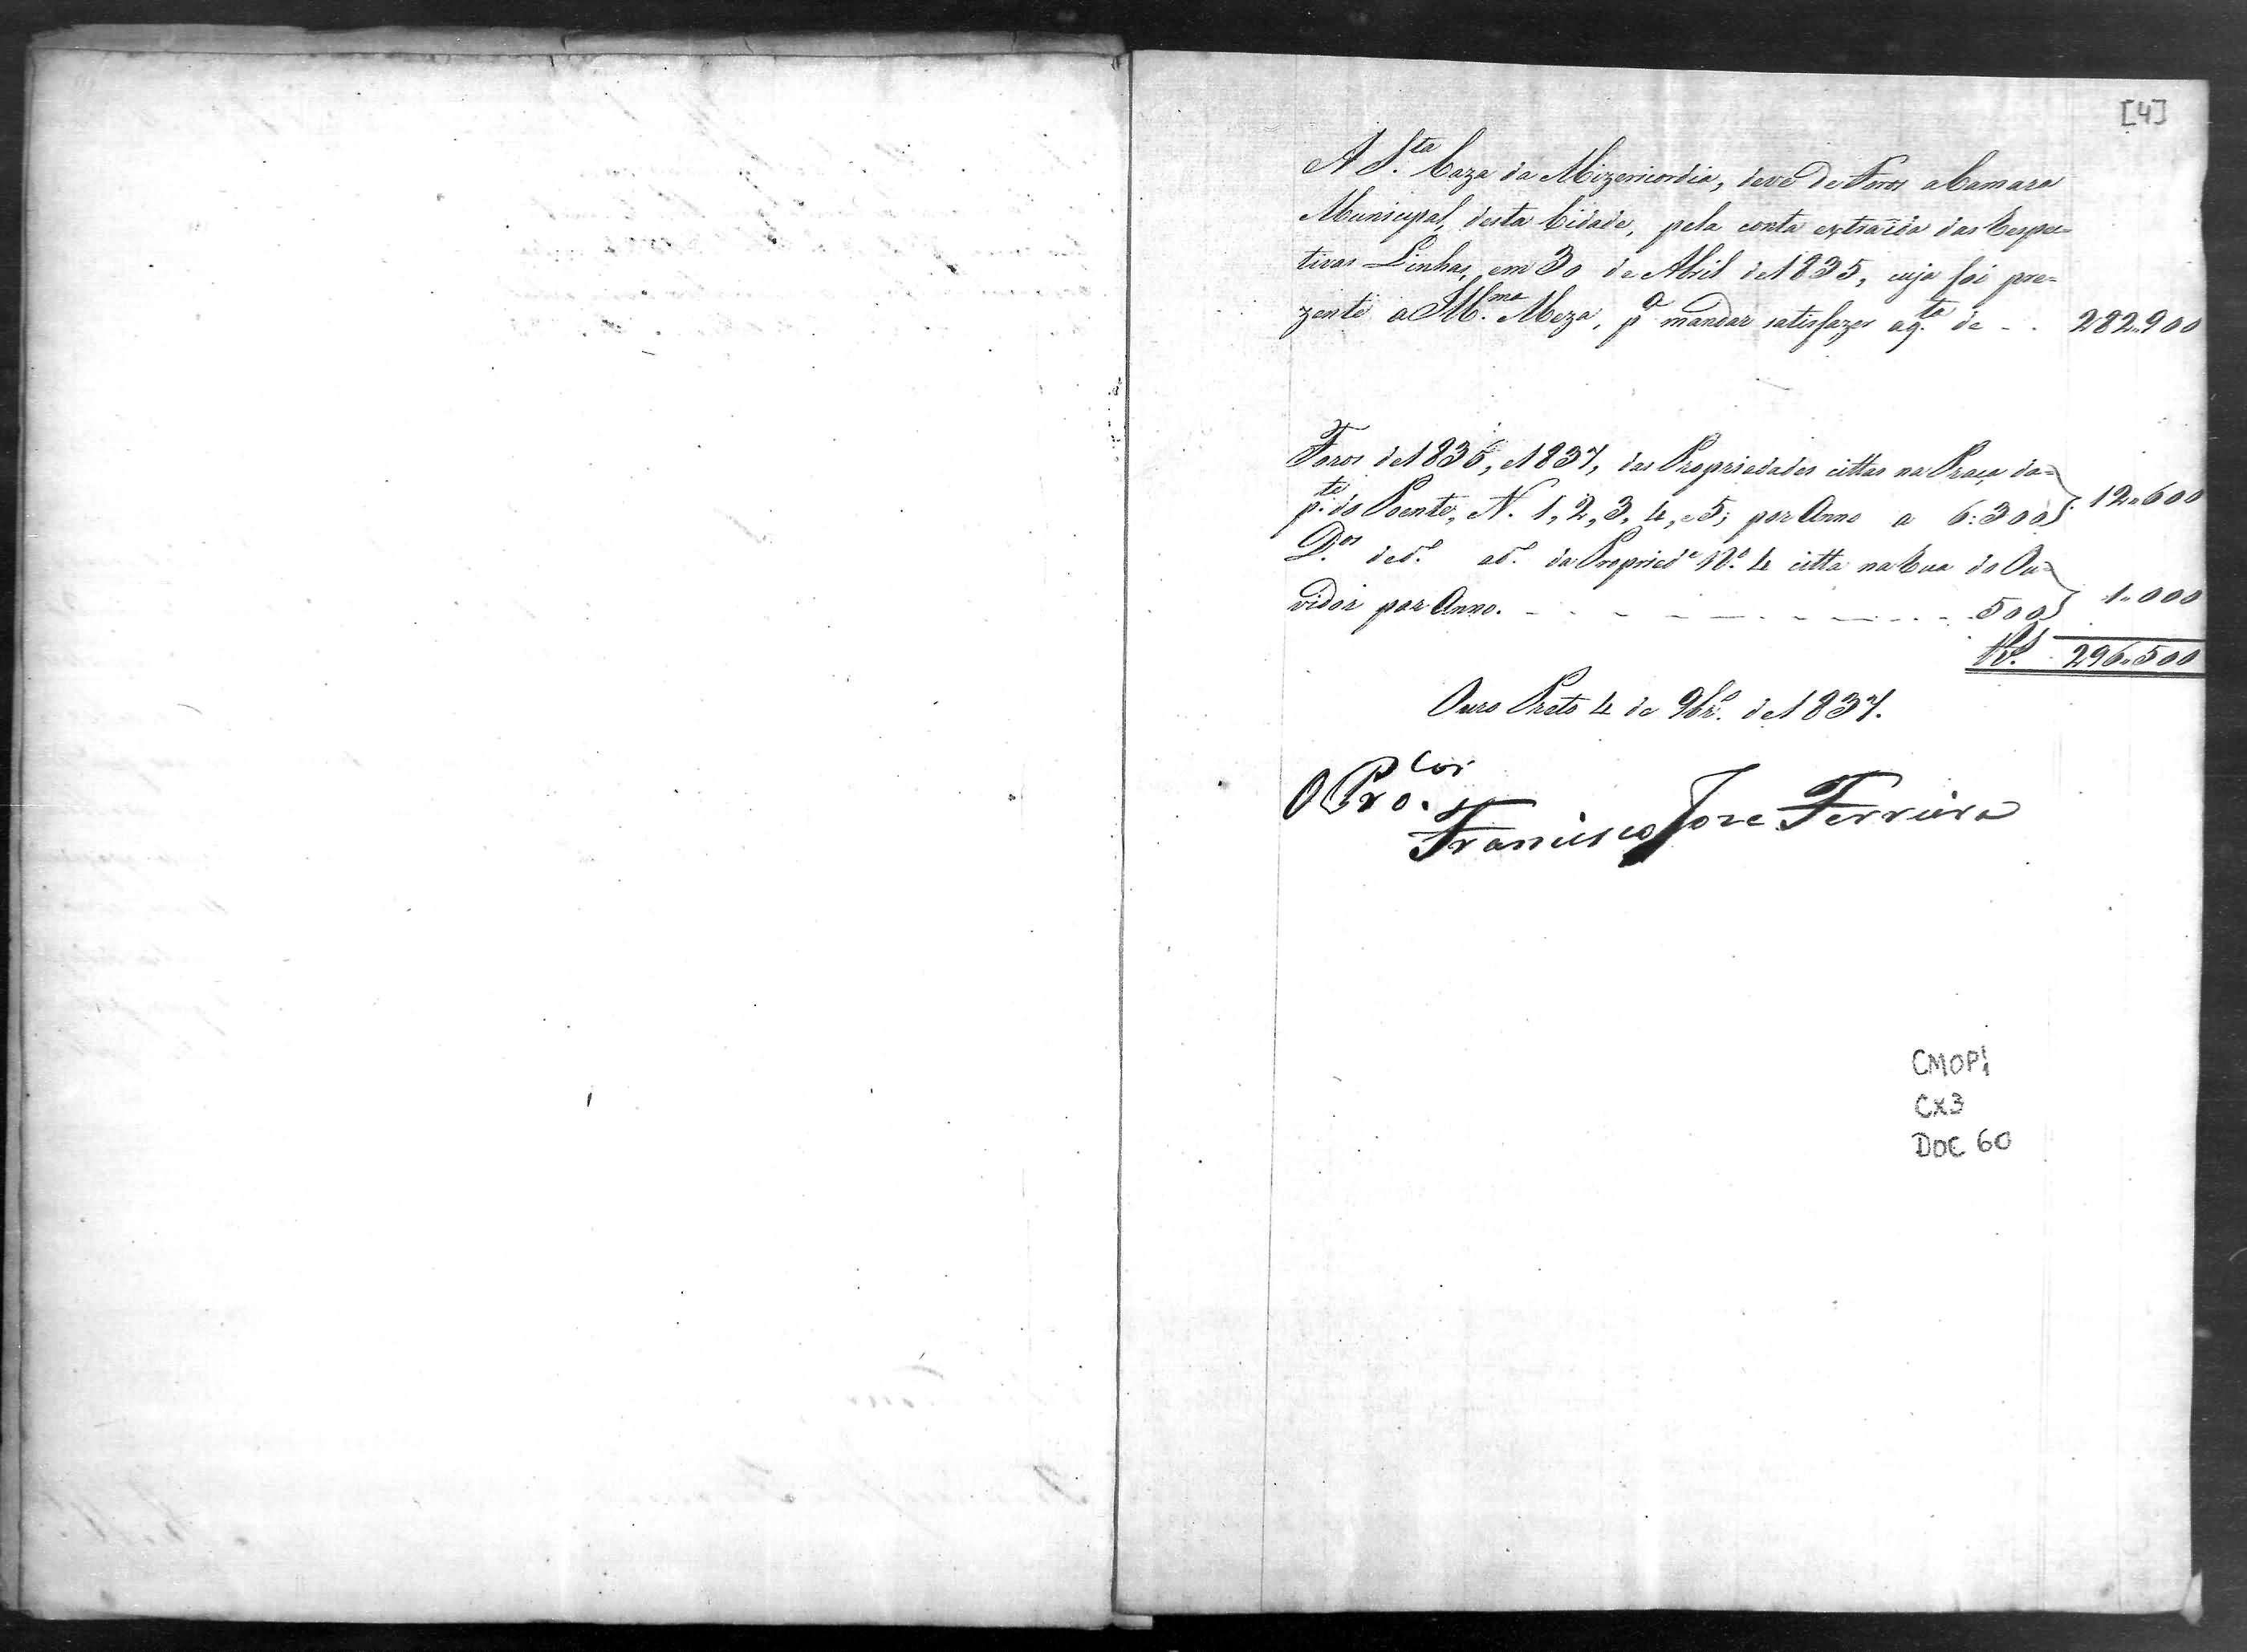 [4]
A S.ta Caza da Mizericordia, deve de Foros a Camara
Municipal, desta Cidade, pela conta extraida das Respe=
tivas Linhas, em 30 de Abril de 1835, cuja foi pre=
zente a Ill.ma Meza, p.a mandar satisfazer a q.ta de - . 282"900
Foros de 1836, e 1837, das Propriedades cittas na Praça da=
p.te do Poente, N. 1, 2, 3, 4, e 5; por Anno a 6:300 12"600
D.os de d.o a d.o da Propried.e N.o 4 citta na Rua do Ou=
vidor por Anno. - - - - - 500 1"000
Rs. 296"500
Ouro Preto 4 de 9br.o de 1837.
O Pro.cor
Francisco Joze Ferreira
CMOP1
CX3
DOC 60